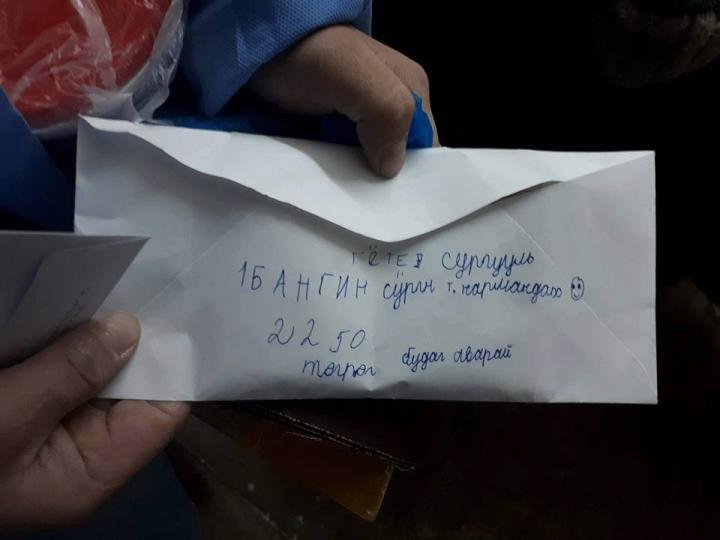 ГЁТЕ сургууль
1Б АНГИЙН сурч т. нармандах
2250
төгрөг будаг аварай